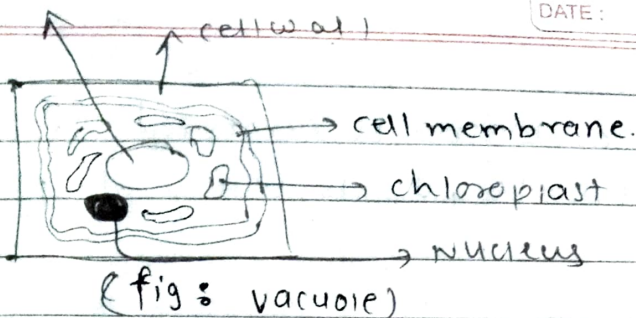 DATE :
cell wall
cell membrane.
chloroplast
Nucleus
(fig : vacuole)